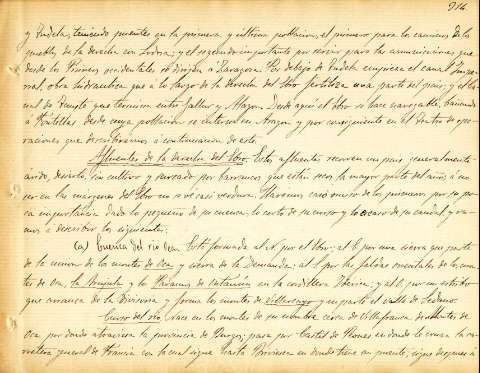 216
y Tudela, teniendo puentes en la primera y última poblacion, el primero para los caminos de los
pueblos de la derecha con Lodosa; y el segundo importante por servir para las comunicaciones que
desde los Pirineos occidentales se dirigen á Zaragoza. Por debajo de Tudela empieza el canal Impe-
rial, obra hidraulica que a lo largo de la derecha del Ebro fertiliza una parte del pais; y el Ca-
nal de Tauste que termina entre Gallur y Alagon. Desde aquí el Ebro se hace navegable, bañando
á Fontellas desde cuya poblacion se interna en Aragon y por consiguiente en el teatro de ope-
raciones que describiremos á continuacion de este.
Afluentes de la derecha del Ebro. Estos afluentes recorren un pais generalmente
árido, desierto, sin cultivo y surcado por barrancos que estan secos la mayor parte del año; á no
ser en las márgenes del Ebro no se ve casi verdura. Haremos caso omiso de los primeros por su po-
ca importancia dado lo pequeño de su cuenca, lo corto de su curso y lo escaso de su caudal, y va-
mos á describir los siguientes.
(a) Cuenca del rio Oca. Está formada al N. por el Ebro; al E. por una sierra que parte
de la union de los montes de Oca y sierra de la Demanda; al S. por las faldas orientales de los mon-
tes de Oca, la Brújula y los Páramos de en la cordillera Ibérica; y al O. por un estribo
que arranca de la Divisoria y forma los montes de Villarcayo y comparte el valle de Sedano.
Curso del rio. Nace en los montes de su nombre cerca de Villafranca de Montes de
Oca por donde atraviesa la provincia de Burgos; pasa por Castil de Peones en donde lo cruza la ca-
rretera general de Francia con la cual sigue hasta Briviesca en donde tiene un puente; sigue despues á